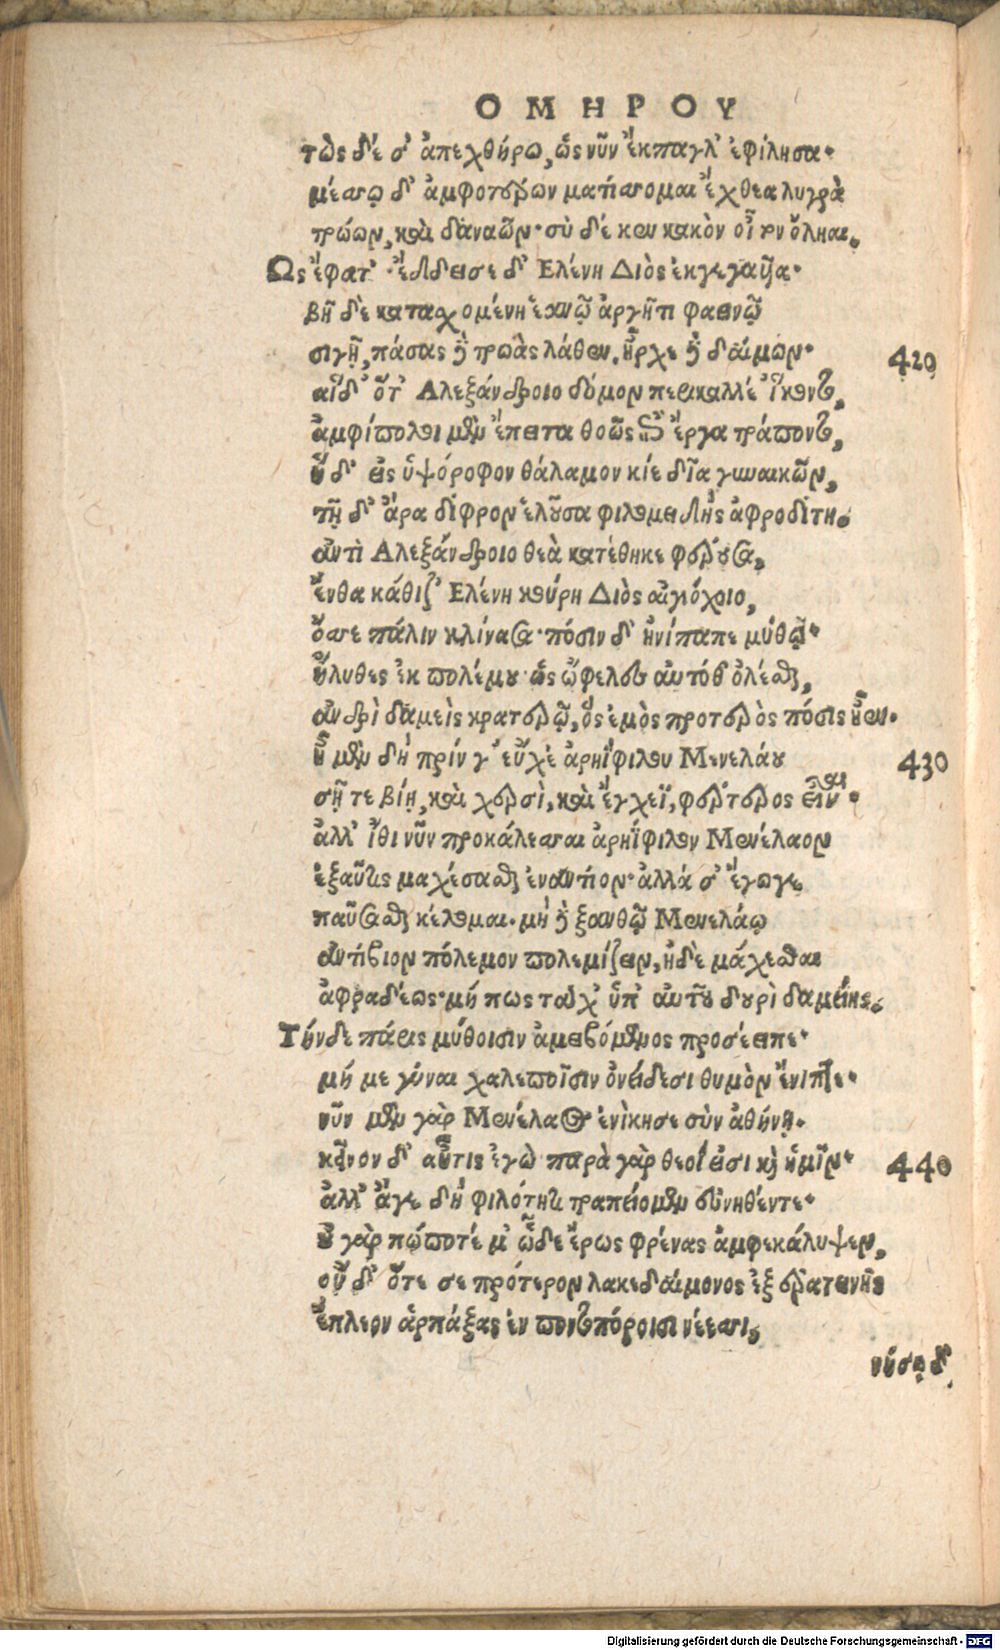 ΟΜΗΡΟΥ
τὼς δέ σ' ἀπεχθήρω, ὡς νῦν ἔκπαγλ' ἐφίλησα·
μέσσῳ δ' ἀμφοτέρων μητίσομαι ἔχθεα λυγρὰ
τρώων, καὶ δαναῶν· σὺ δέ κεν κακὸν οἶτον ὄληαι.
Ως ἔφατ' ἔδδεισε δ' Ελένη Διὸς ἐκγεγαῦῖα·
βῆ δὲ κατασχομένη ἑανῷ ἀργῆτι φαεινῷ
σιγῇ, πάσας δὲ τρωὰς λάθεν. ἦρχε δὲ δαίμων· 420
αἱ δ' ὅτ' Αλεξάνδροιο δόμον περικαλλέ' ἵκοντο,
ἀμφίπολοι μὲν ἔπειτα θοῶς ἐπὶ ἔργα τράποντο,
ἡ δ' εἰς ὑψόροφον θάλαμον κίε δῖα γυναικῶν,
τῇ δ' ἄρα δίφρον ἑλοῦσα φιλομειδὴς ἀφροδίτη.
ἀντὶ Αλεξάνδροιο θεὰ κατέθηκε φέρουσα,
ἔνθα κάθιζ' Ελένη κούρη Διὸς αἰγιόχοιο,
ὄσσε πάλιν κλίνασα· πόσιν δ' ἠνίπαπε μύθῳ·
ἤλυθες ἐκ πολέμου ὡς ὤφελες αὐτόθ' ὀλέσθαι,
ἀνδρὶ δαμεὶς κρατερῷ, ὃς ἐμὸς πρότερὸς πόσις ἦεν.
ἦ μὲν δὴ πρίν γ' εὔχε' ἀρηϊφίλου Μενελάου 430
σῇ τε βίῃ, καὶ χερσὶ, καὶ ἔγχεϊ, φέρτερος εἶναι·
ἀλλ' ἴθι νῦν προκάλεσσαι ἀρηΐφιλον Μενέλαον
ἐξαῦτις μαχέσασθαι ἐναντίον· ἀλλά σ' ἔγωγε
παύσασθαι κέλομαι. μὴ δὲ ξανθῷ Μενελάῳ
ἀντίβιον πόλεμον πολεμίζειν, ἠδὲ μάχεσθαι
ἀφραδέως· μή πως τάχ' ὑπ' αὐτοῦ δουρὶ δαμείης.
Τήνδε πάρις μύθοισιν ἀμειβόμενος προσέειπε·
μή με γύναι χαλεποῖσιν ὀνείδεσι θυμὸν ἔνιπτε·
νῦν μὲν γὰρ Μενέλαος ἐνίκησε σὺν ἀθήνῃ.
κεῖνον δ' αὖτις ἐγὼ παρὰ γὰρ θεοί εἰσι καὶ ἡμῖν· 440
ἀλλ' ἄγε δὴ φιλότητι τραπείομεν εὐνηθέντε·
οὐ γὰρ πώποτέ μ' ὧδε ἔρως φρένας ἀμφεκάλυψεν,
οὔ δ' ὅτε σε πρότερον λακεδαίμονος ἐξ ἐρατεινῆς
ἔπλεον ἁρπάξας ἐν ποντοπόροισι νέεσσι,
νήσῳ δ'
Digitalisierung gefördert durch die Deutsche Forschungsgemeinschaft - DFG